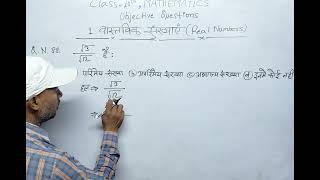 Class-10th, MATHEMATICS
Objective Questions
1 वास्तविक संख्याएँ (Real Numbers)
Q.N. 58. √3/√12 है:
परिमेय संख्या (b) अपरिमेय संख्या (c) अभाज्य संख्या (d) इनमें कोई नहीं
हल ⇒ √3/√12
⇒